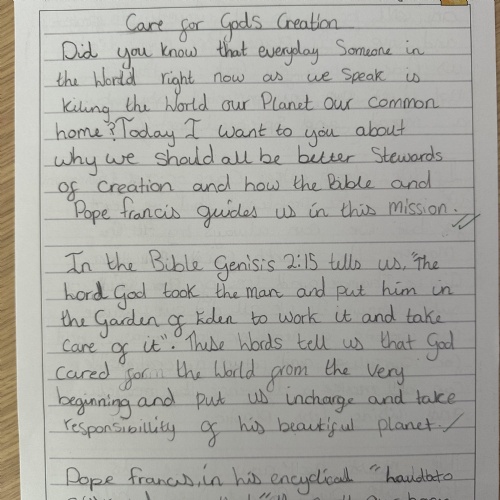 Care for Gods Creation
Did you know that everyday Someone in
the World right now as we Speak is
Killing the World our Planet our common
home? Today I want to you about
why we should all be better Stewards
of Creation and how the Bible and
Pope francis guides us in this mission.
In the Bible Genisis 2:15 tells us, "The
lord God took the man and put him in
the Garden of Eden to work it and take
care of it". These Words tell us that God
cared for the World from the very
beginning and put us incharge and take
responsibillity of his beautiful planet.
Pope francis, in his encyclical "